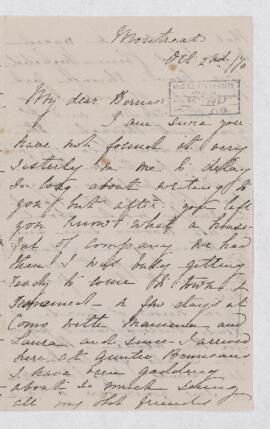 Montreal
Oct. 2nd /70
McGILL UNIVERSITY
My dear Bernie
I am sure you
have not found it very
sisterly in me to delay
so long about writing to
you but after you left
you know what a house-
out of company we had
then I was busy getting
ready to come to town &
a few days at
Como with Mamma and
Laura and since I arrived
here at Auntie
I have been gadding
about so much seeing
all my old friends &